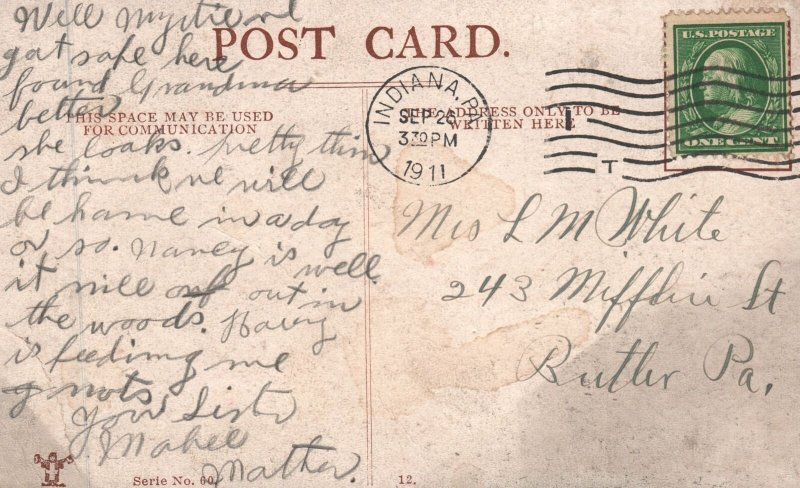 Well Mystic rd
POST CARD.
got safe here
found Grandma
better
THIS SPACE MAY BE USED
FOR COMMUNICATION
THE ADDRESS ONLY TO BE
WRITTEN HERE
she loaks. pretty thin
I think we will
be hame in a day
or so. Nancy is
well.
it nice out in
the woods. Harry
is feeding me
nots
Your Sister
Mabel
Mather.
Serie No. 60
12.
INDIANA, PA
SEP 26
3 30 PM
1911
T
U.S. POSTAGE
ONE CENT
Mrs L M White
243 Mifflin St
Butler Pa.